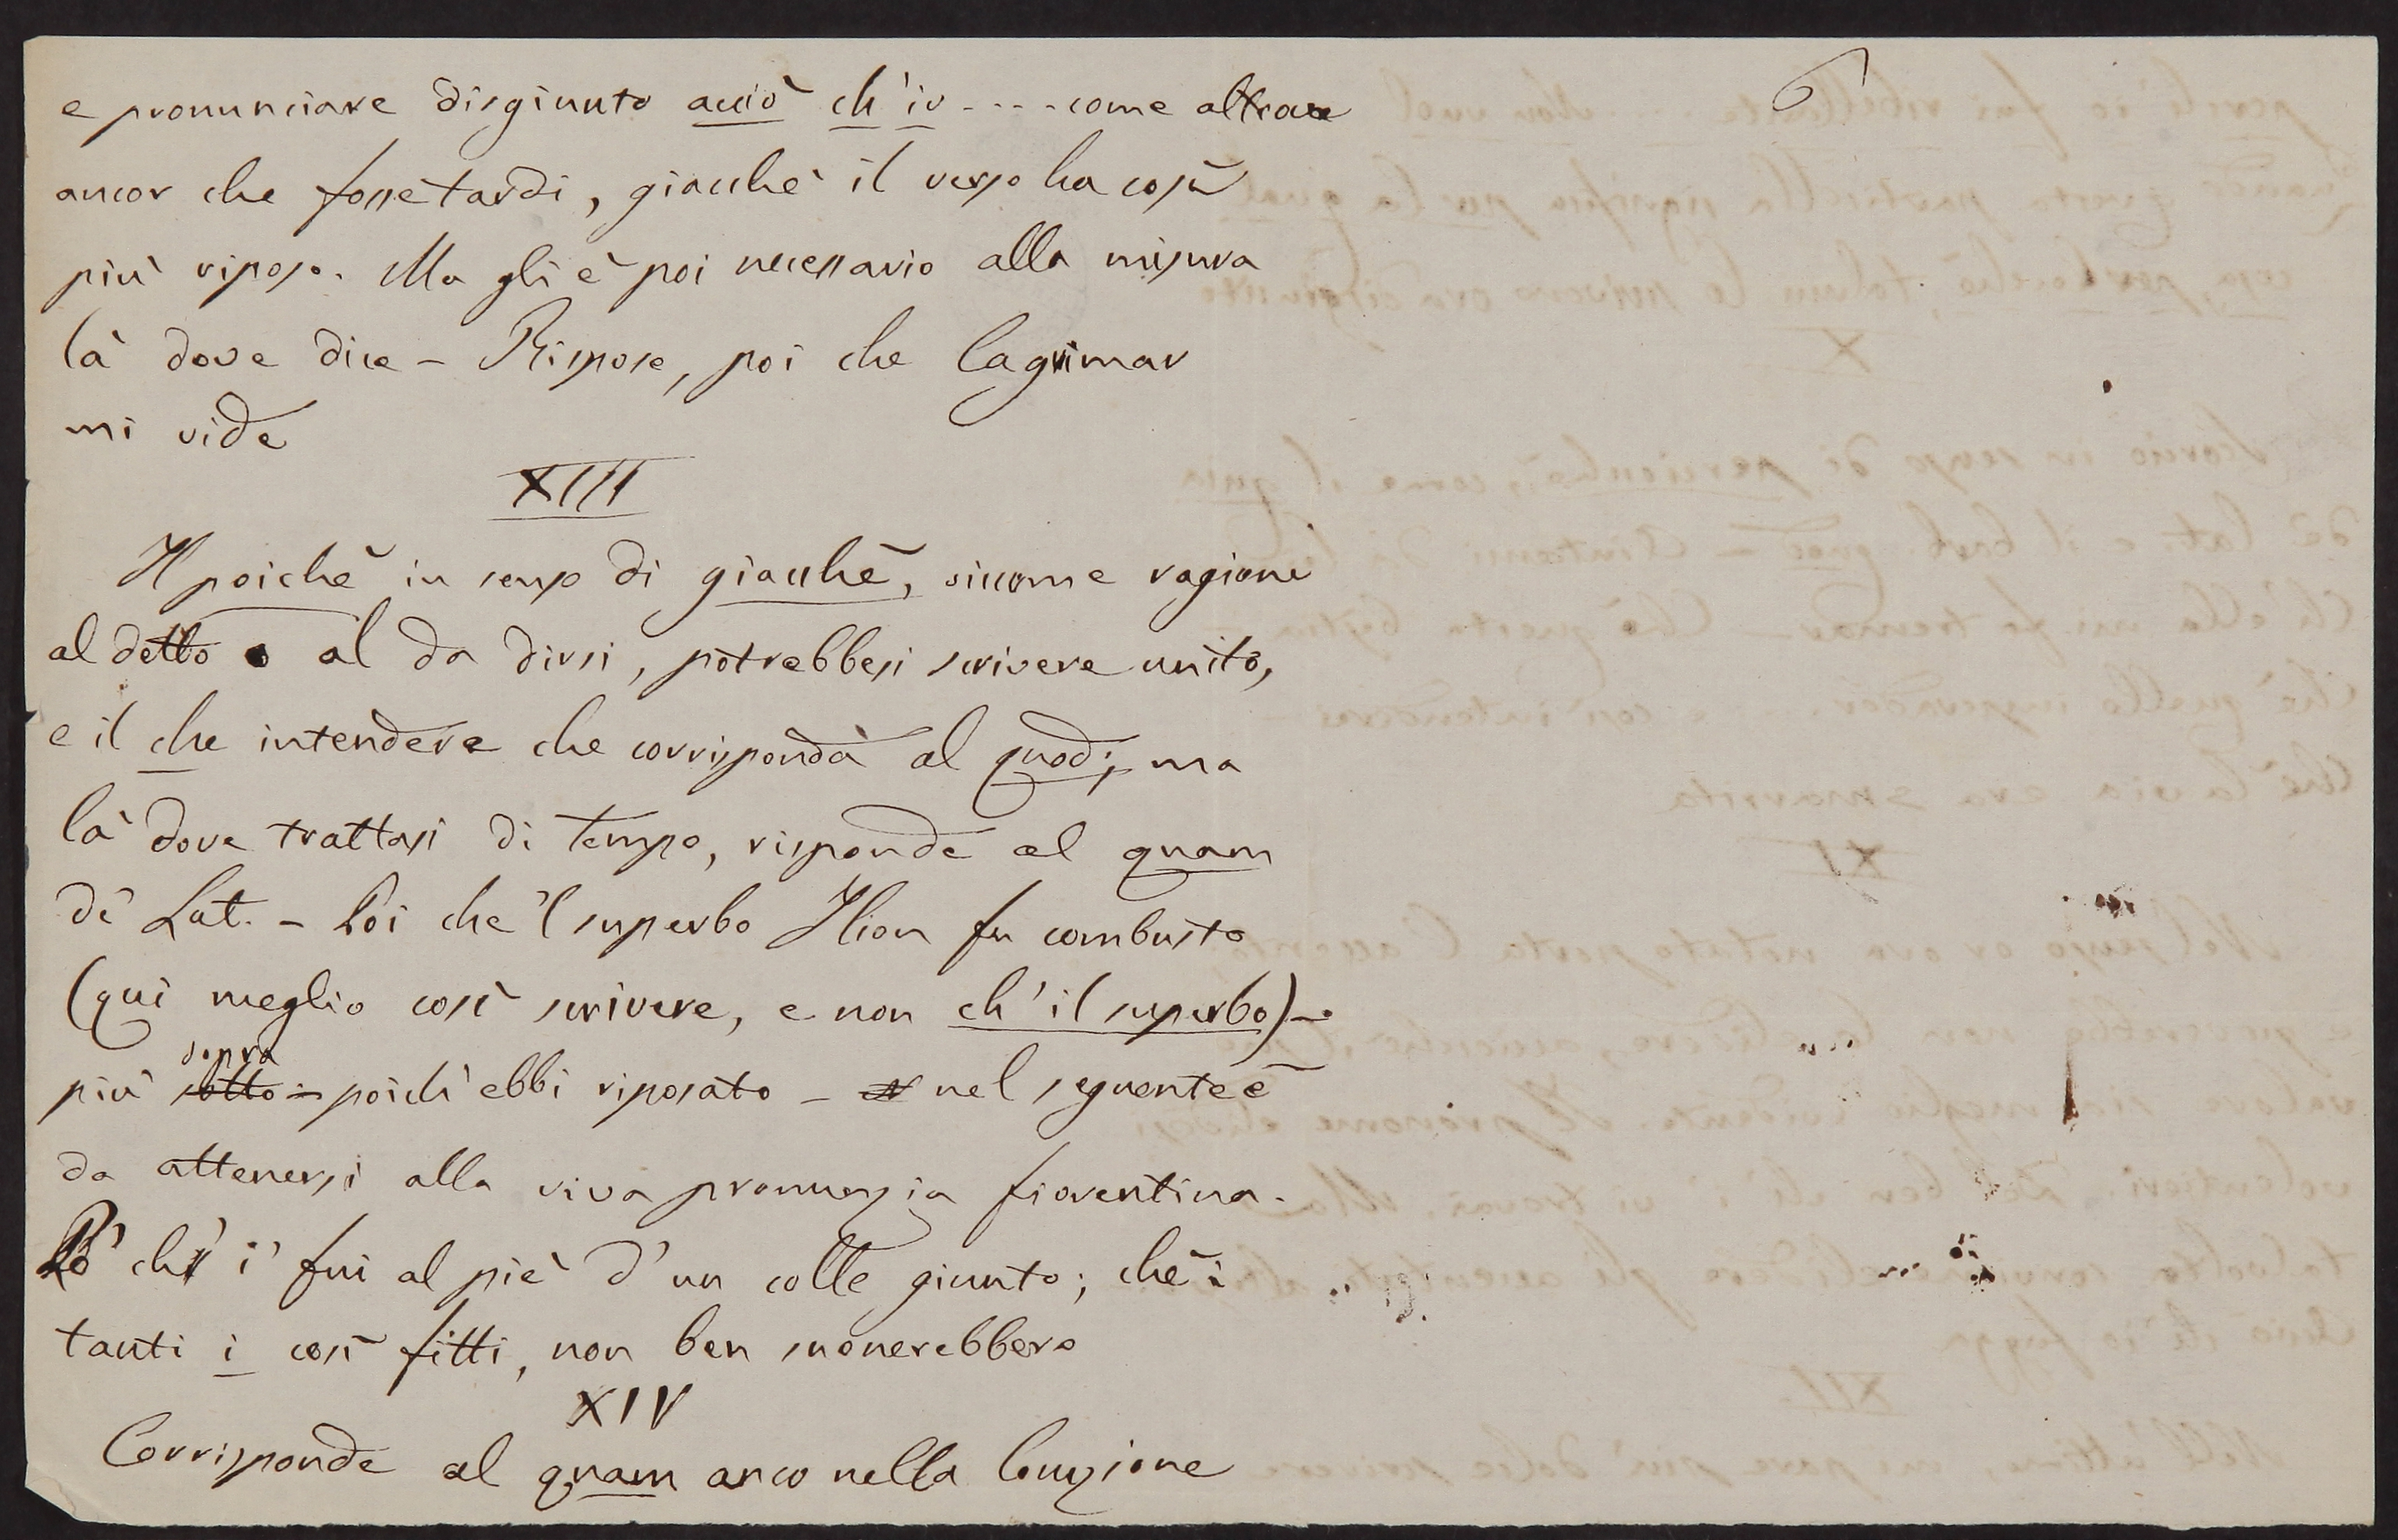 6
e pronunciare disgiunto acciò ch'io .... come altrove
ancor che fosse tardi, giacchè il verso ha così
più riposo. Ma gli è poi necessario alla misura
là dove dice – Rispose, poi che lagrimar
mi vide
XIII
Il poichè in senso di giacchè, siccome ragione
al detto o al da dirsi, potrebbesi scrivere unito,
e il che intendere che corrisponda al quod; ma
là dove trattasi di tempo, risponde al quam
de' Lat. – Poi che 'l superbo Ilion fu combusto
(qui meglio così scrivere, e non ch'il superbo) –
sopra
più sotto – poich' ebbi riposato – nel seguente è
da attenersi alla viva pronunzia fiorentina.
Po' ch' i' fui al piè d'un colle giunto; chè i
tanti i così fitti, non ben suonerebbero
XIV
Corrisponde al quam anco nella locuzione